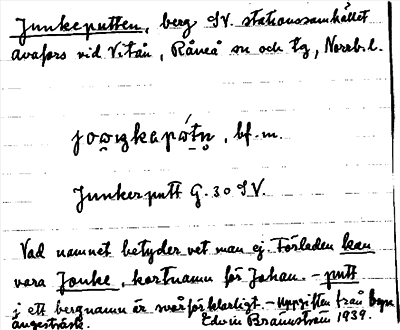 Junkeputten, berg SV. stationssamhället
Avafors vid Vitån, Råneå sn och tg, Norrb.l.
bf. m.
Junkerputt G. 30 SV.
Vad namnet betyder vet man ej. Förleden kan
vara Jonke, kortnamn för Johan. - putt
i ett bergnamn är svårförklarligt. - Uppgiften från
ångesträsk. Edwin Brännström 1939.